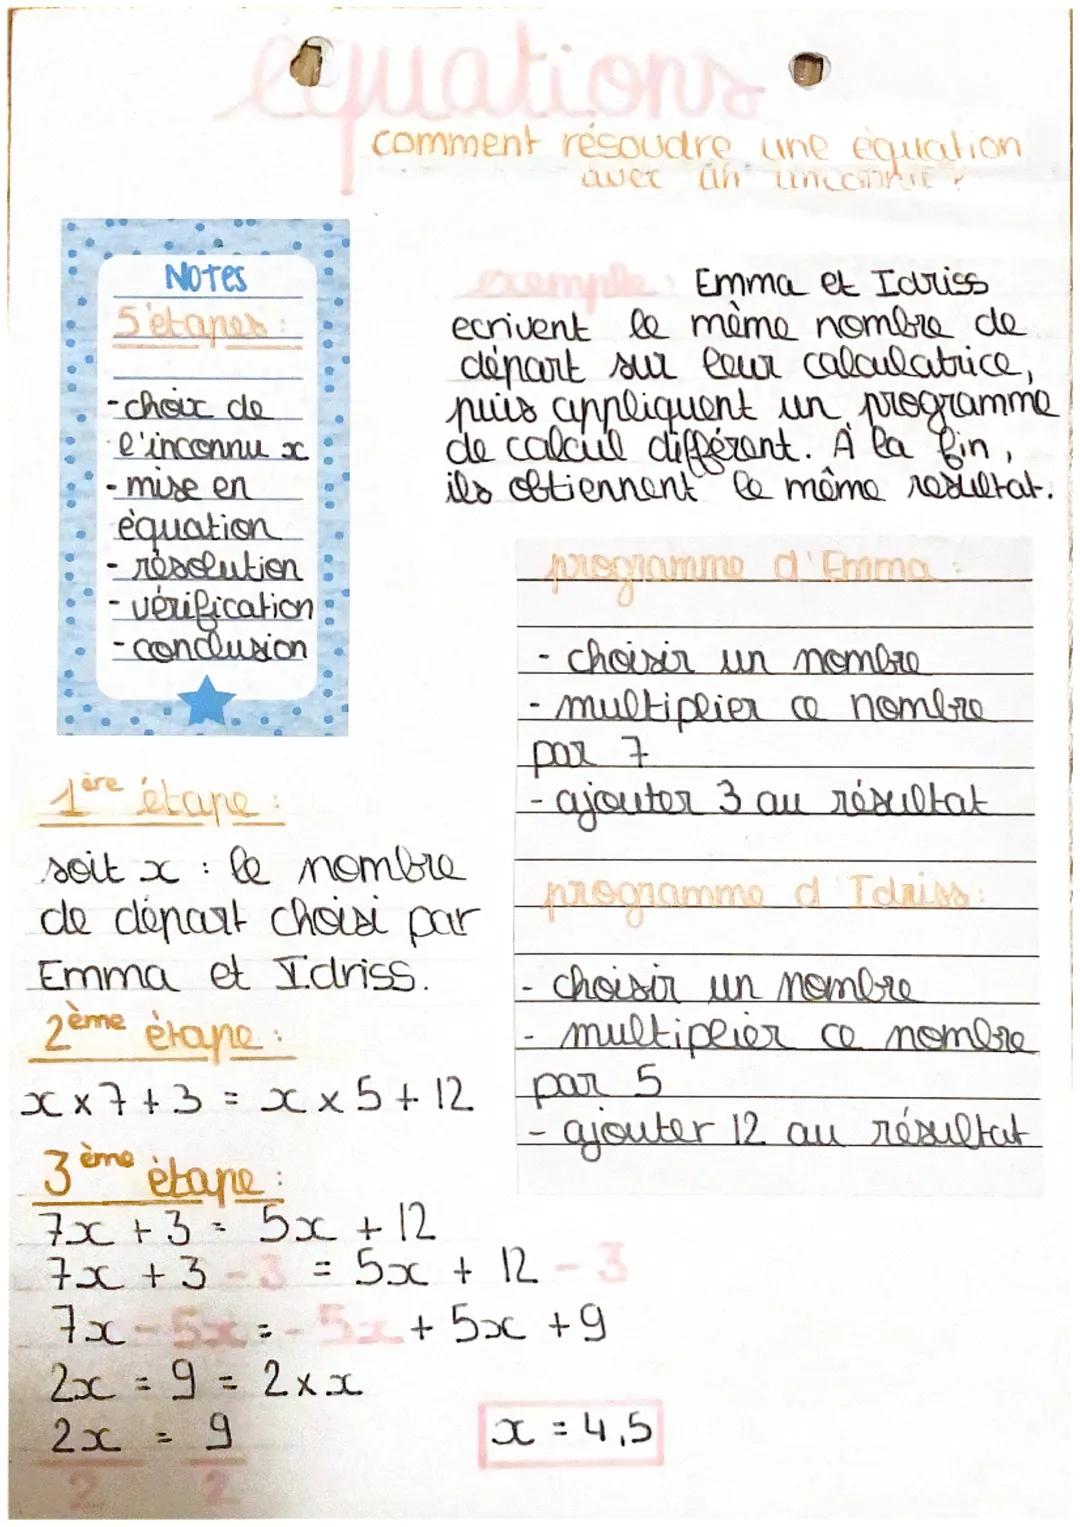 équations
comment résoudre une équation
avec un inconnu ?
NOTES
5 étapes :
- choix de
l'inconnu x
- mise en
équation
- résolution
- vérification
- conclusion
exemple : Emma et Idriss
ecrivent le même nombre de
départ sur leur calculatrice,
puis appliquent un programme
de calcul différent. À la fin,
ils obtiennent le même resultat.
programme d'Emma :
- choisir un nombre
- multiplier ce nombre
par 7
- ajouter 3 au résultat
programme d Idriss:
- choisir un nombre
- multiplier ce nombre
par 5
- ajouter 12 au résultat
1ère étape :
soit x : le nombre
de départ choisi par
Emma et Idriss.
2ème étape :
x x 7 + 3 = x x 5 + 12
3ème étape :
7x + 3 = 5x + 12
7x + 3 - 3 = 5x + 12 - 3
7x - 5x = - 5x + 5x + 9
2x = 9 = 2 x x
2x = 9
2 2
x = 4,5